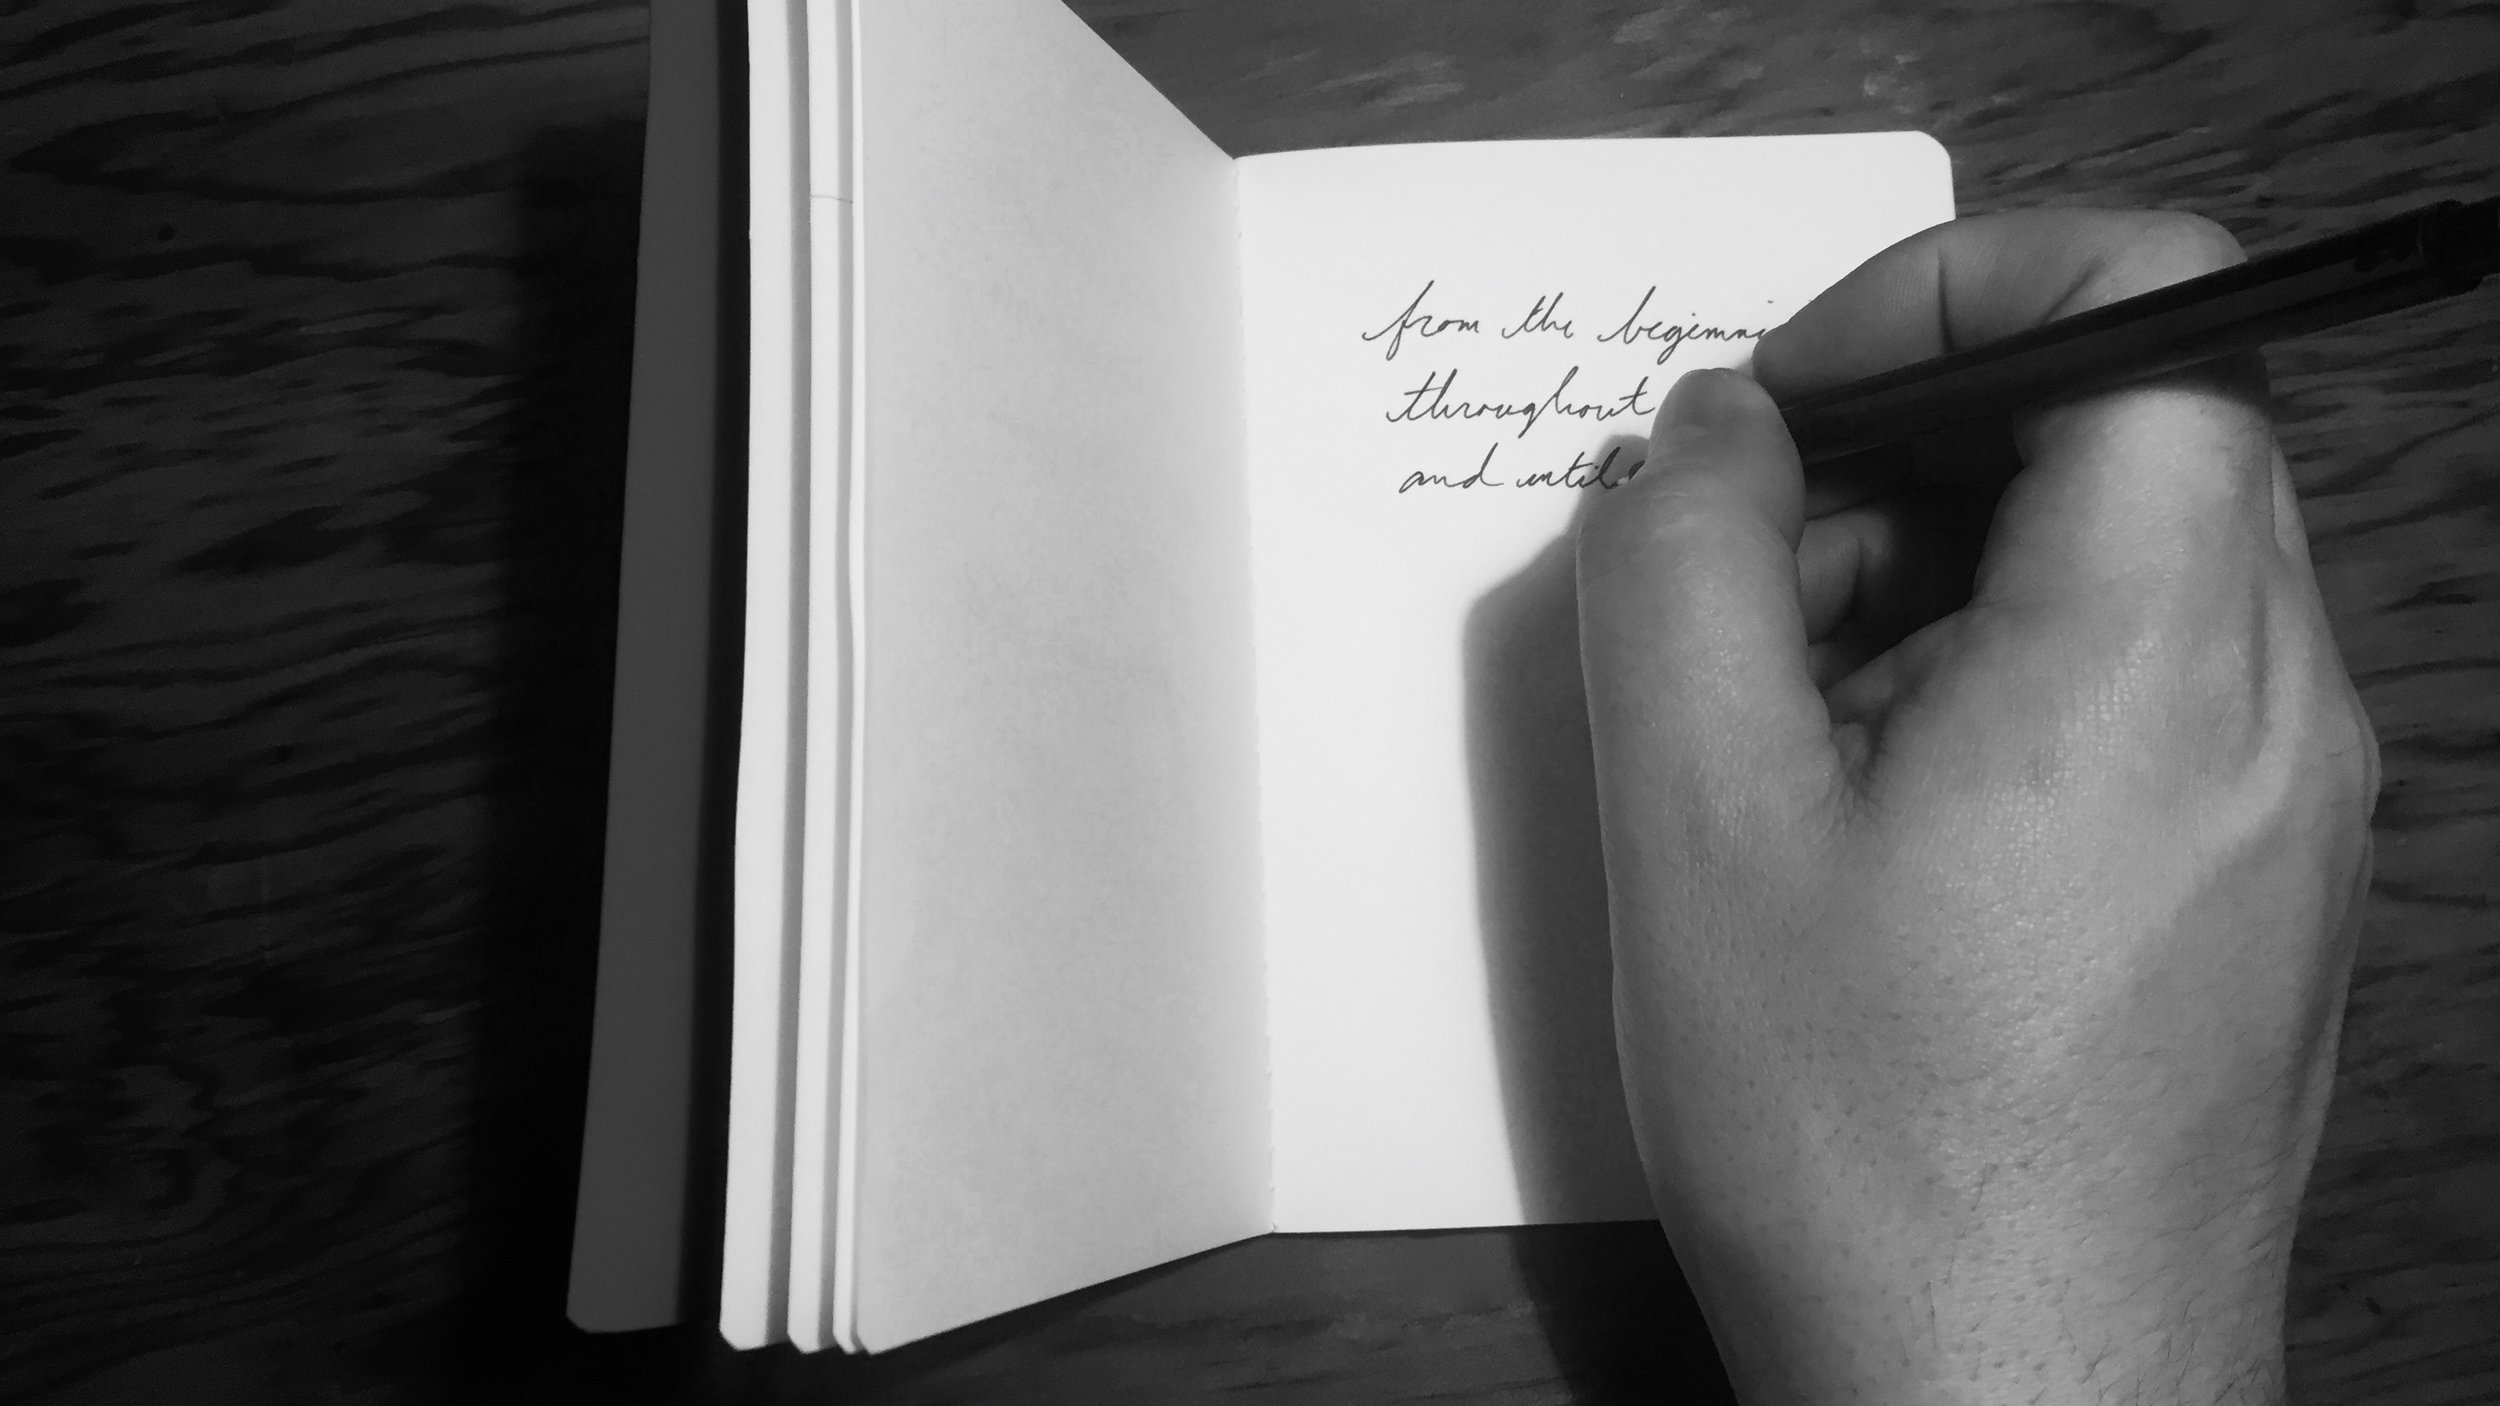 from the beginni
throughout
and until